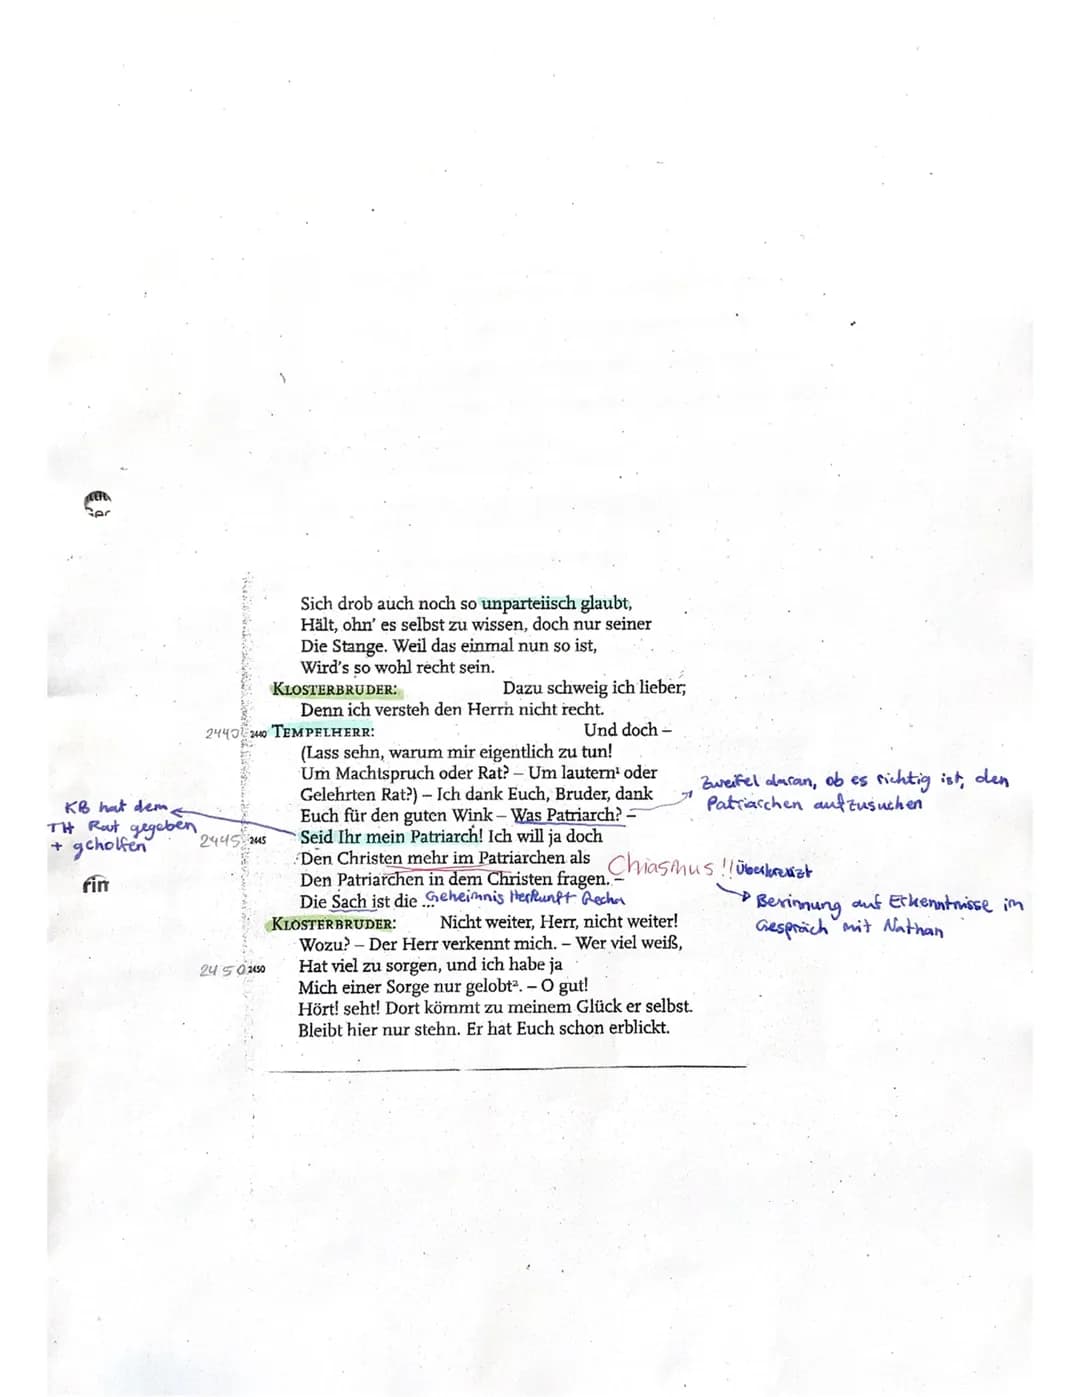 Sich drob auch noch so unparteiisch glaubt,
Hält, ohn' es selbst zu wissen, doch nur seiner
Die Stange. Weil das einmal nun so ist,
Wird's so wohl recht sein.
KLOSTERBRUDER: Dazu schweig ich lieber;
Denn ich versteh den Herrn nicht recht.
2440 2440 TEMPELHERR: Und doch –
(Lass sehn, warum mir eigentlich zu tun!
Um Machtspruch oder Rat? – Um lautern¹ oder
Gelehrten Rat?) – Ich dank Euch, Bruder, dank
Euch für den guten Wink – Was Patriarch? –
Zweifel daran, ob es richtig ist, den
Patriarchen aufzusuchen
KB hat dem
TH Rat gegeben
+ geholfen
2445 2445 Seid Ihr mein Patriarch! Ich will ja doch
Den Christen mehr im Patriarchen als
Den Patriarchen in dem Christen fragen. –
Chiasmus!! überkreuzt
Die Sach ist die ... Geheimnis Herkunft Recha
Besinnung auf Erkenntnisse im
Gespräch mit Nathan
KLOSTERBRUDER: Nicht weiter, Herr, nicht weiter!
Wozu? – Der Herr verkennt mich. – Wer viel weiß,
2450 2450 Hat viel zu sorgen, und ich habe ja
Mich einer Sorge nur gelobt². – O gut!
Hört! seht! Dort kömmt zu meinem Glück er selbst.
Bleibt hier nur stehn. Er hat Euch schon erblickt.